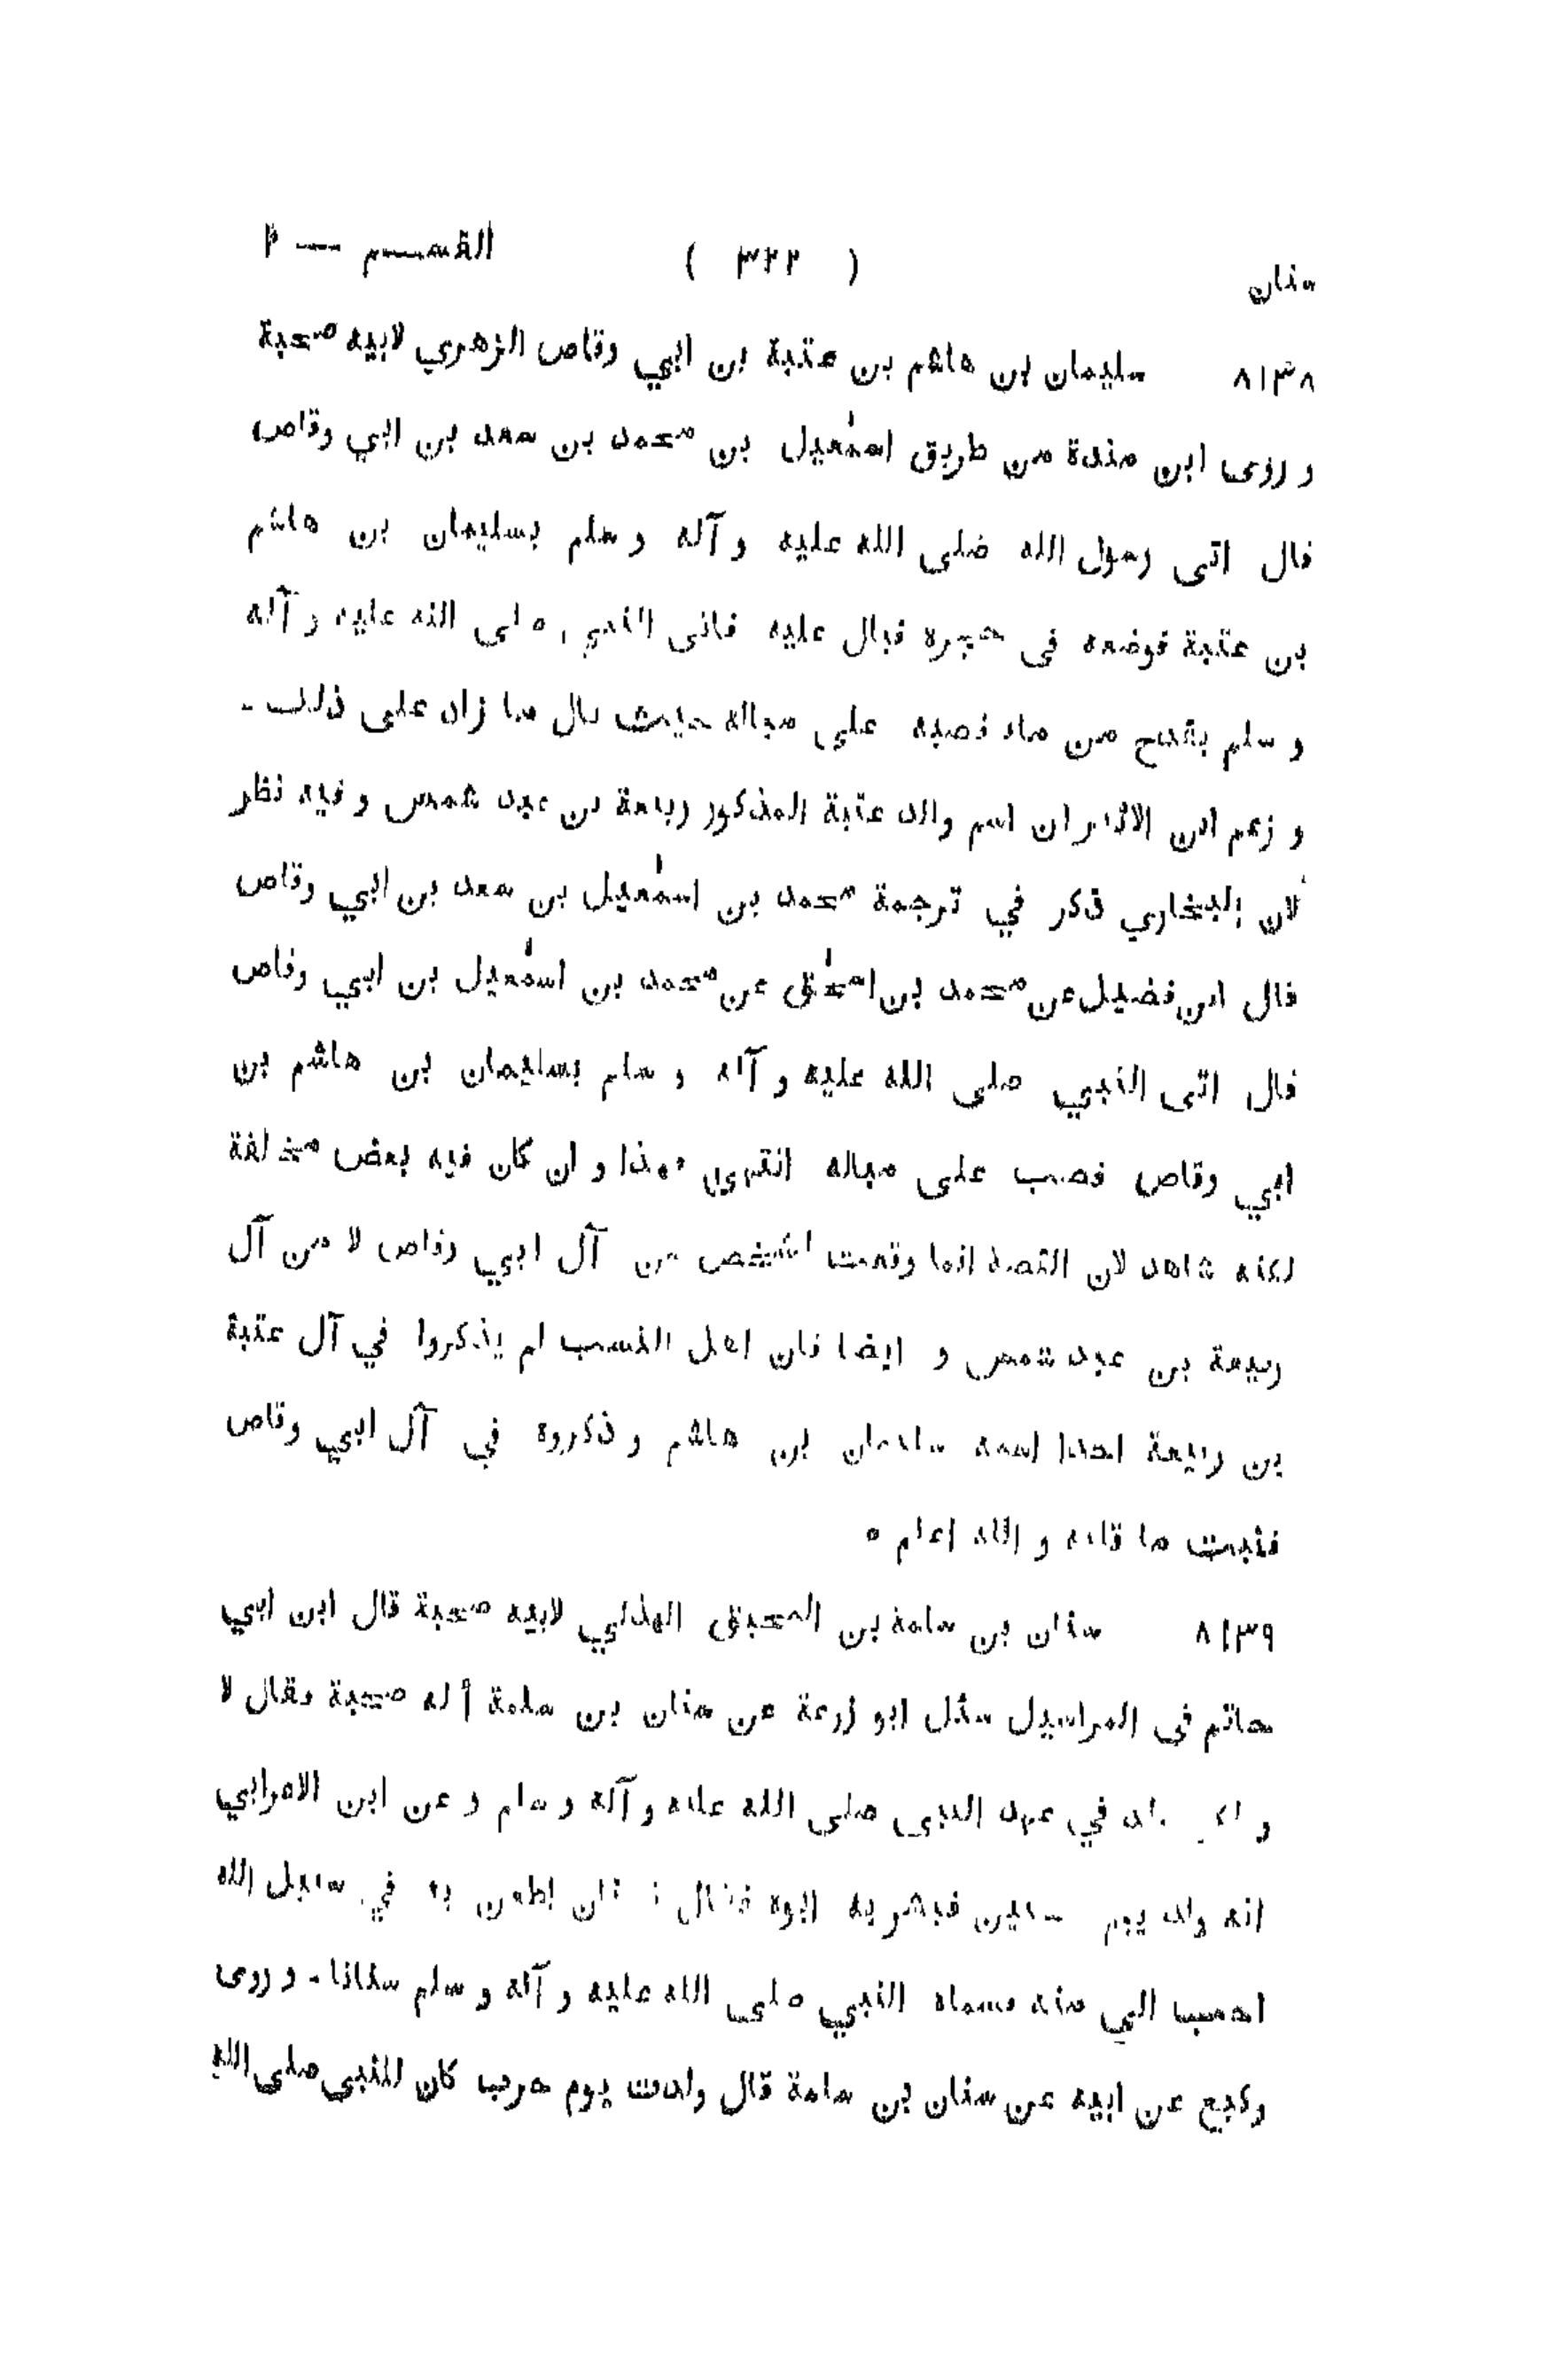 سنان ( ٣٢٢ ) القسم — ٢
٨١٣٨ سليمان بن هاشم بن عتبة بن ابي وقاص الزهري لابيه صحبة
و روى ابن مندة من طريق اسمٰعيل بن محمد بن سعد بن ابي وقاص
قال اتى رسول الله صلى الله عليه و آله و سلم بسليمان بن هاشم
بن عتبة فوضعه فى حجره فبال عليه فاتى النبي صلى الله عليه و آله
و سلم بقدح من ماء فصبه على مباله حيث بال ما زاد على ذلك -
و زعم ابن الاثير ان اسم والد عتبة المذكور ربيعة بن عبد شمس و فيه نظر
لان البخاري ذكر في ترجمة محمد بن اسمٰعيل بن سعد بن ابي وقاص
قال ابن فضيل عن محمد بن اسحٰق عن محمد بن اسمٰعيل بن ابي وقاص
قال اتى النبي صلى الله عليه و آله و سلم بسليمان بن هاشم بن
ابي وقاص فصب على مباله انتهى فهذا و ان كان فيه بعض مخالفة
لكنه شاهد لان القصة انما وقعت لشخص من آل ابي وقاص لا من آل
ربيعة بن عبد شمس و ايضا فان اهل النسب لم يذكروا في آل عتبة
بن ربيعة احدا اسمه سليمان بن هاشم و ذكروه في آل ابي وقاص
فثبت ما قلته و الله اعلم ٥
٨١٣٩ سنان بن سلمة بن المحبق الهذلي لابيه صحبة قال ابن ابي
حاتم فى المراسيل سئل ابو زرعة عن سنان بن سلمة أ له صحبة فقال لا
و لكن ولد في عهد النبى صلى الله عليه و آله و سلم و عن ابن الاعرابي
انه ولد يوم حنين فبشر به ابوه فقال : لسنان اطعن به في سبيل الله
احب الي منه فسماه النبي صلى الله عليه و آله و سلم سنانا - و روى
وكيع عن ابيه عن سنان بن سلمة قال ولدت يوم حرب كان للنبى صلى الله